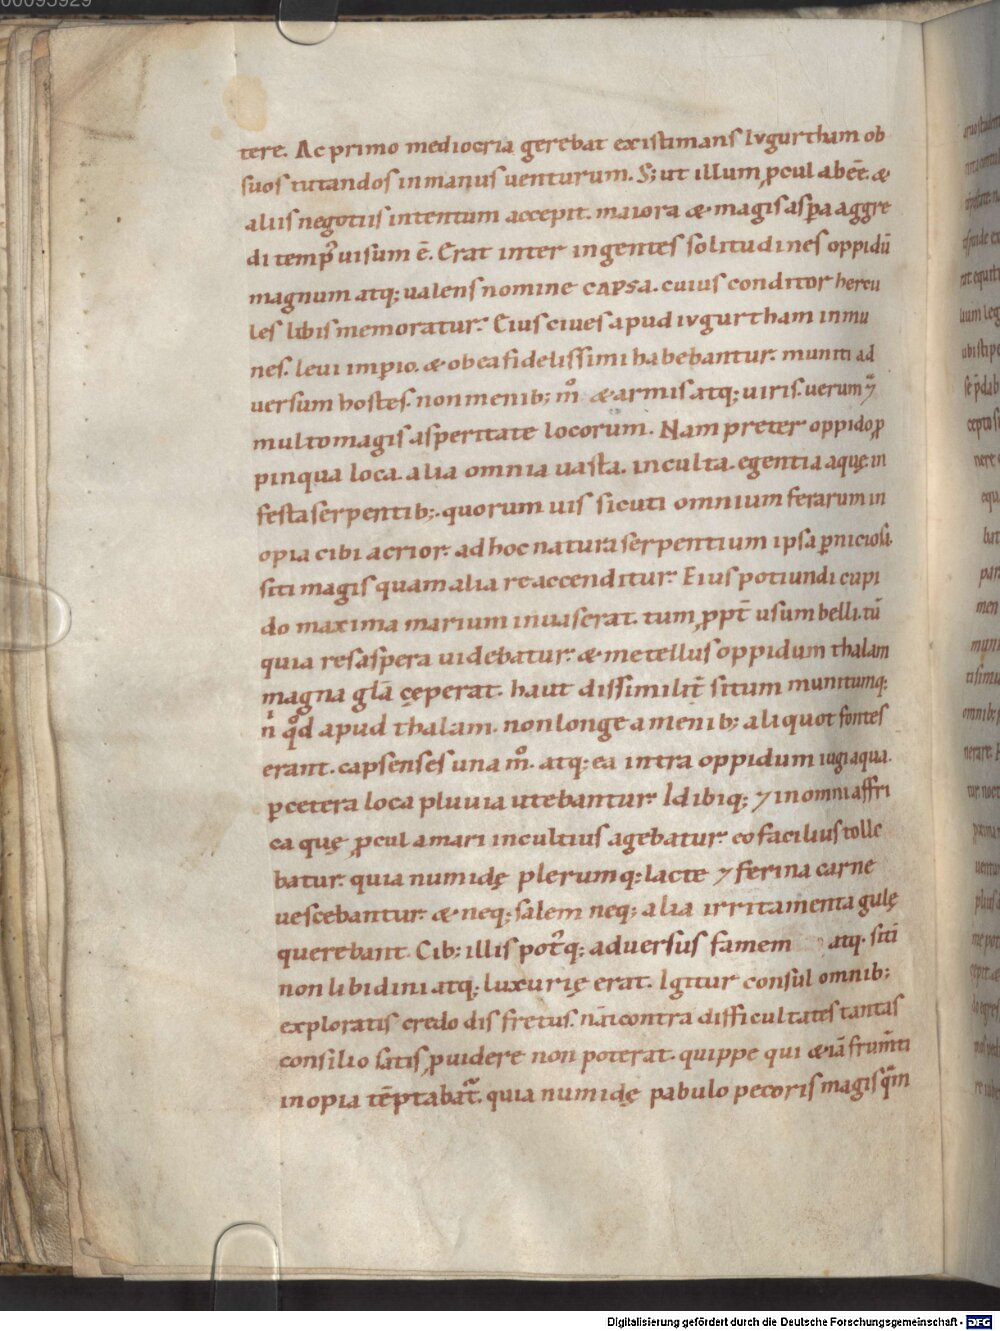 00095929
tere. Ac primo mediocria gerebat existimans Ivgurtham ob
suos tutandos in manus uenturum. S; ut illum ꝓcul abeē. &
aliis negotiis intentum accepit. maiora & magis asꝑa aggre
di temp᷒ uisum ē. Erat inter ingentes solitudines oppidū
magnum atq; ualens nomine CAPSA. cuius conditor hercu
les libis memoratur. Eius ciues apud iugurtham inmu
nes. leui imꝑio. & ob ea fidelissimi habebantur. muniti ad
uersum hostes. non menib; mͦ & armis atq; uiris. uerum ⁊̄
multo magis asperitate locorum. Nam preter oppido ꝓ
pinqua loca. alia omnia uasta. inculta. egentia aquę. in
festa serpentib;. quorum uis sicuti omnium ferarum in
opia cibi acrior. ad hoc natura serpentium ipsa ꝑniciosa.
siti magis quam alia re accenditur. Eius potiundi cupi
do maxima marium inuaserat. tum ꝓpt̄ usum belli. tū
quia res aspera uidebatur. & metellus oppidum thalam
magna glā cęperat. haut dissimilit̄ situm munitumq;
n̍ qͦd apud thalam. non longe a menib; aliquot fontes
erant. capsenses una mͦ. atq; ea intra oppidum iugi aqua.
ꝑcetera loca pluuia utebantur. Id ibiq; ⁊ in omni affri
ca quę ꝓcul a mari incultius agebatur. eo facilius tolle
batur. quia numidę plerumq; lacte ⁊ ferina carne
uescebantur. & neq; salem neq; alia irritamenta gulę
querebant. Cib; illis pot᷒q; aduersus famem atq. sitī
non libidini atq; luxurię erat. Igitur consul omnib;
exploratis credo dis fretus. nā contra difficultates tantas
consilio satis ꝓuidere non poterat. quippe qui & iā frum̄ti
inopia tēptabat᷒. quia numidę pabulo pecoris magis qᷓm
Digitalisierung gefördert durch die Deutsche Forschungsgemeinschaft - DFG